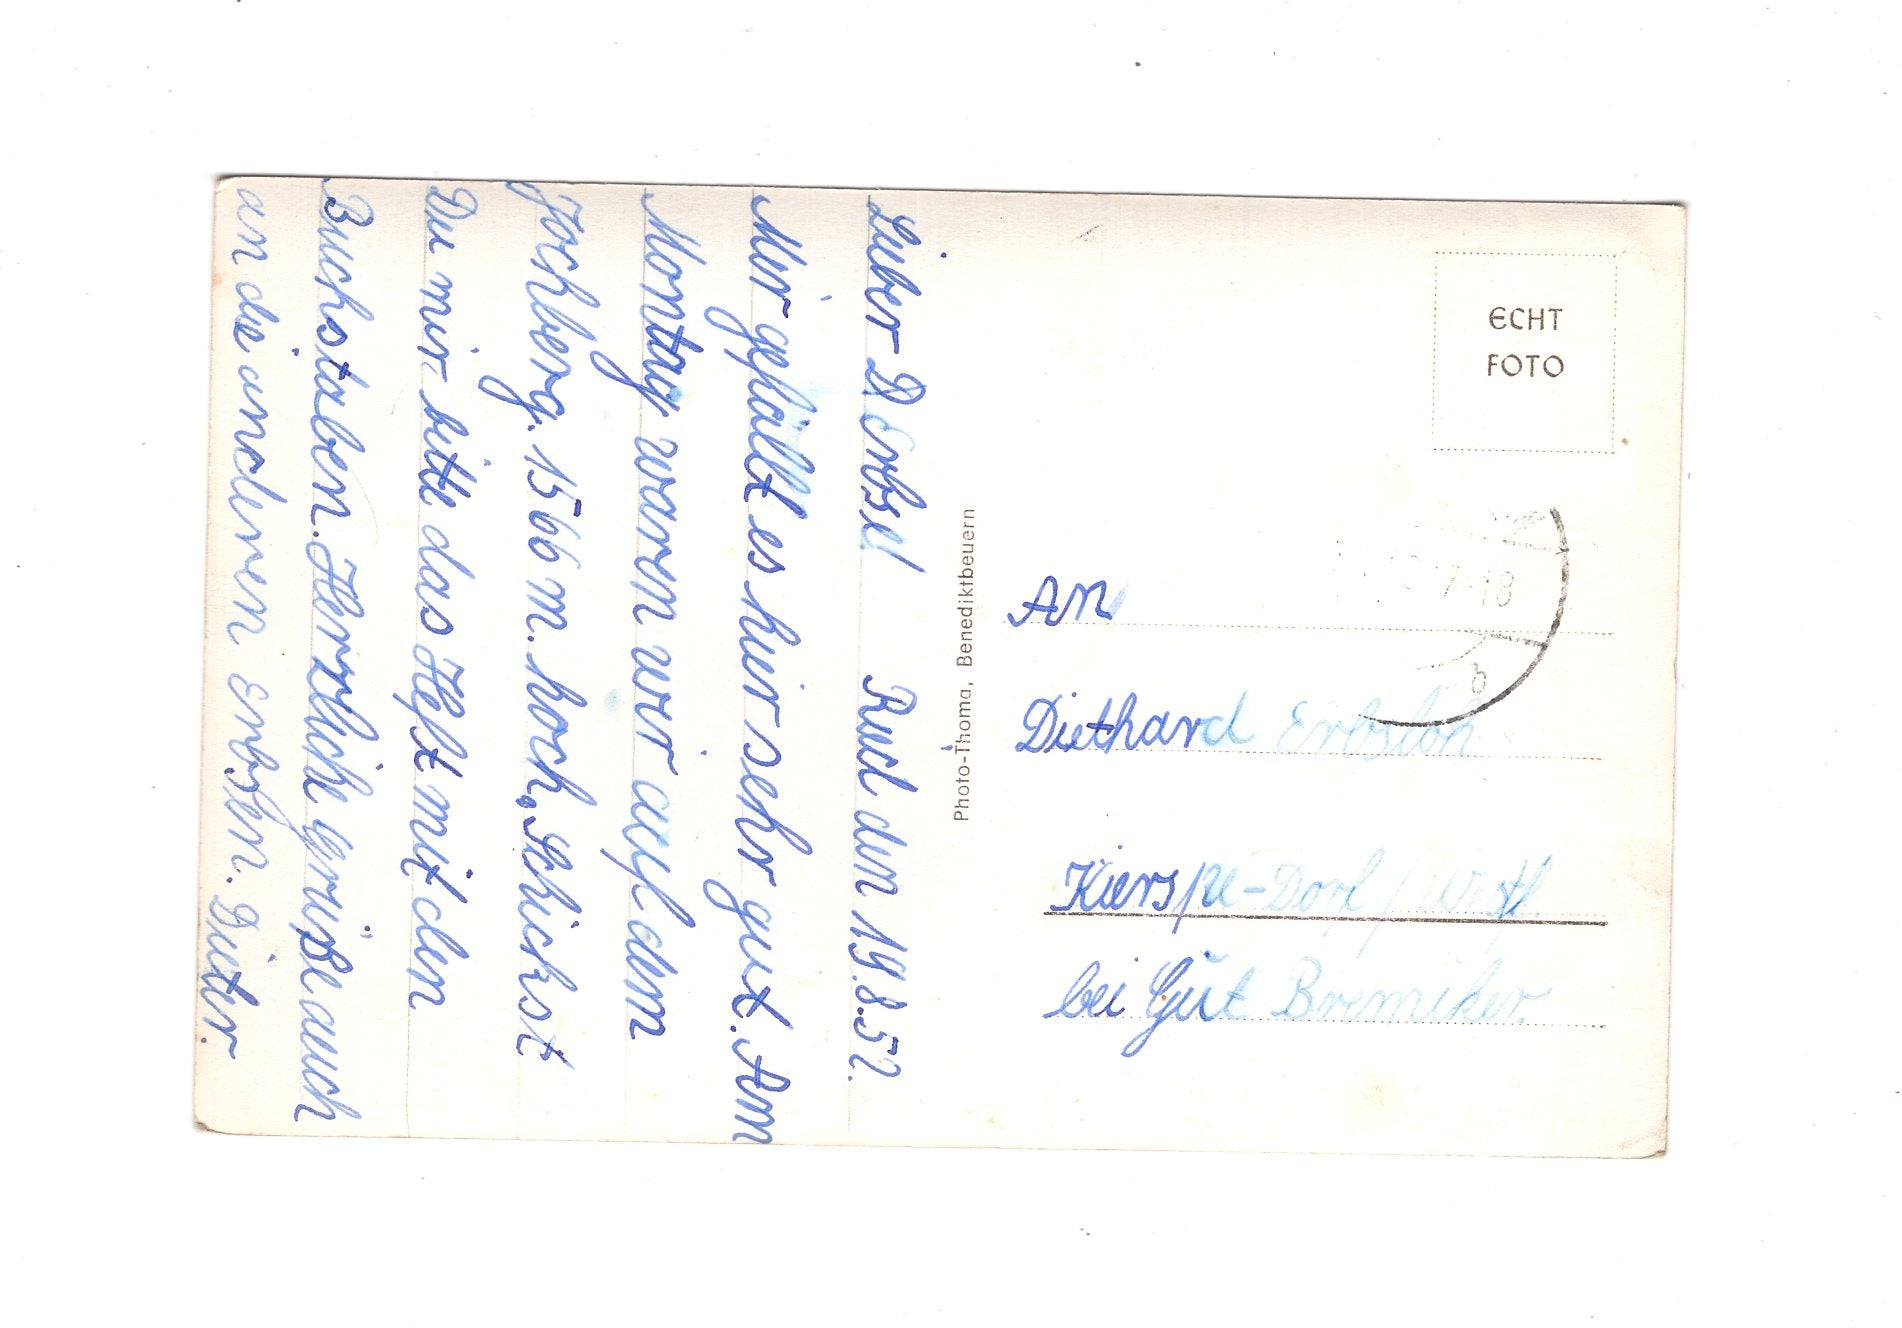 Lieber D Erbsel Ried den 19.8.52.
Mir gefällt es hier sehr gut. Am
Montag waren wir auf dem
Jochberg. 1566 m. hoch. Schickst
Du mir bitte das Heft mit den
Buchstaben. Herzlich grüße auch
an die anderen Erbsen. Dieter.
Photo-Thoma, Benediktbeuern
ECHT
FOTO
7-18
b
An
Diethard Erbslöh
Kierspe-Dorf / Westf.
bei Gut Bremiker.